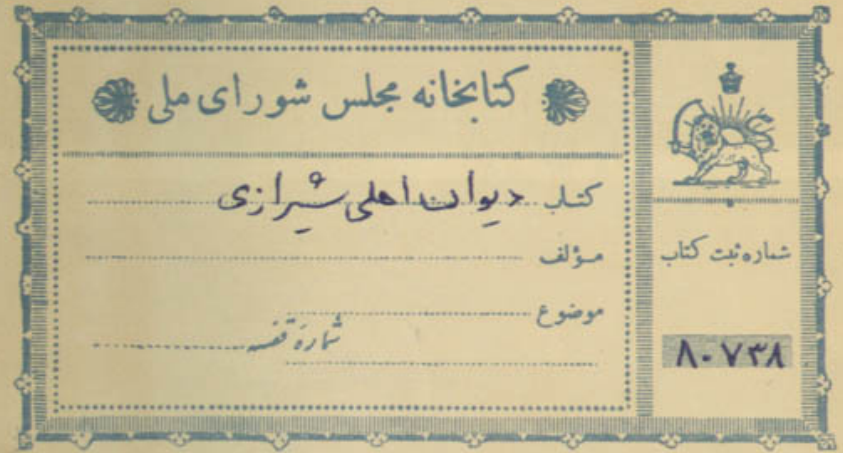 کتابخانه مجلس شورای ملی
کتاب دیوان اهلی شیرازی
مؤلف
موضوع
شماره قفسه
شماره ثبت کتاب
۸۰۷۳۸